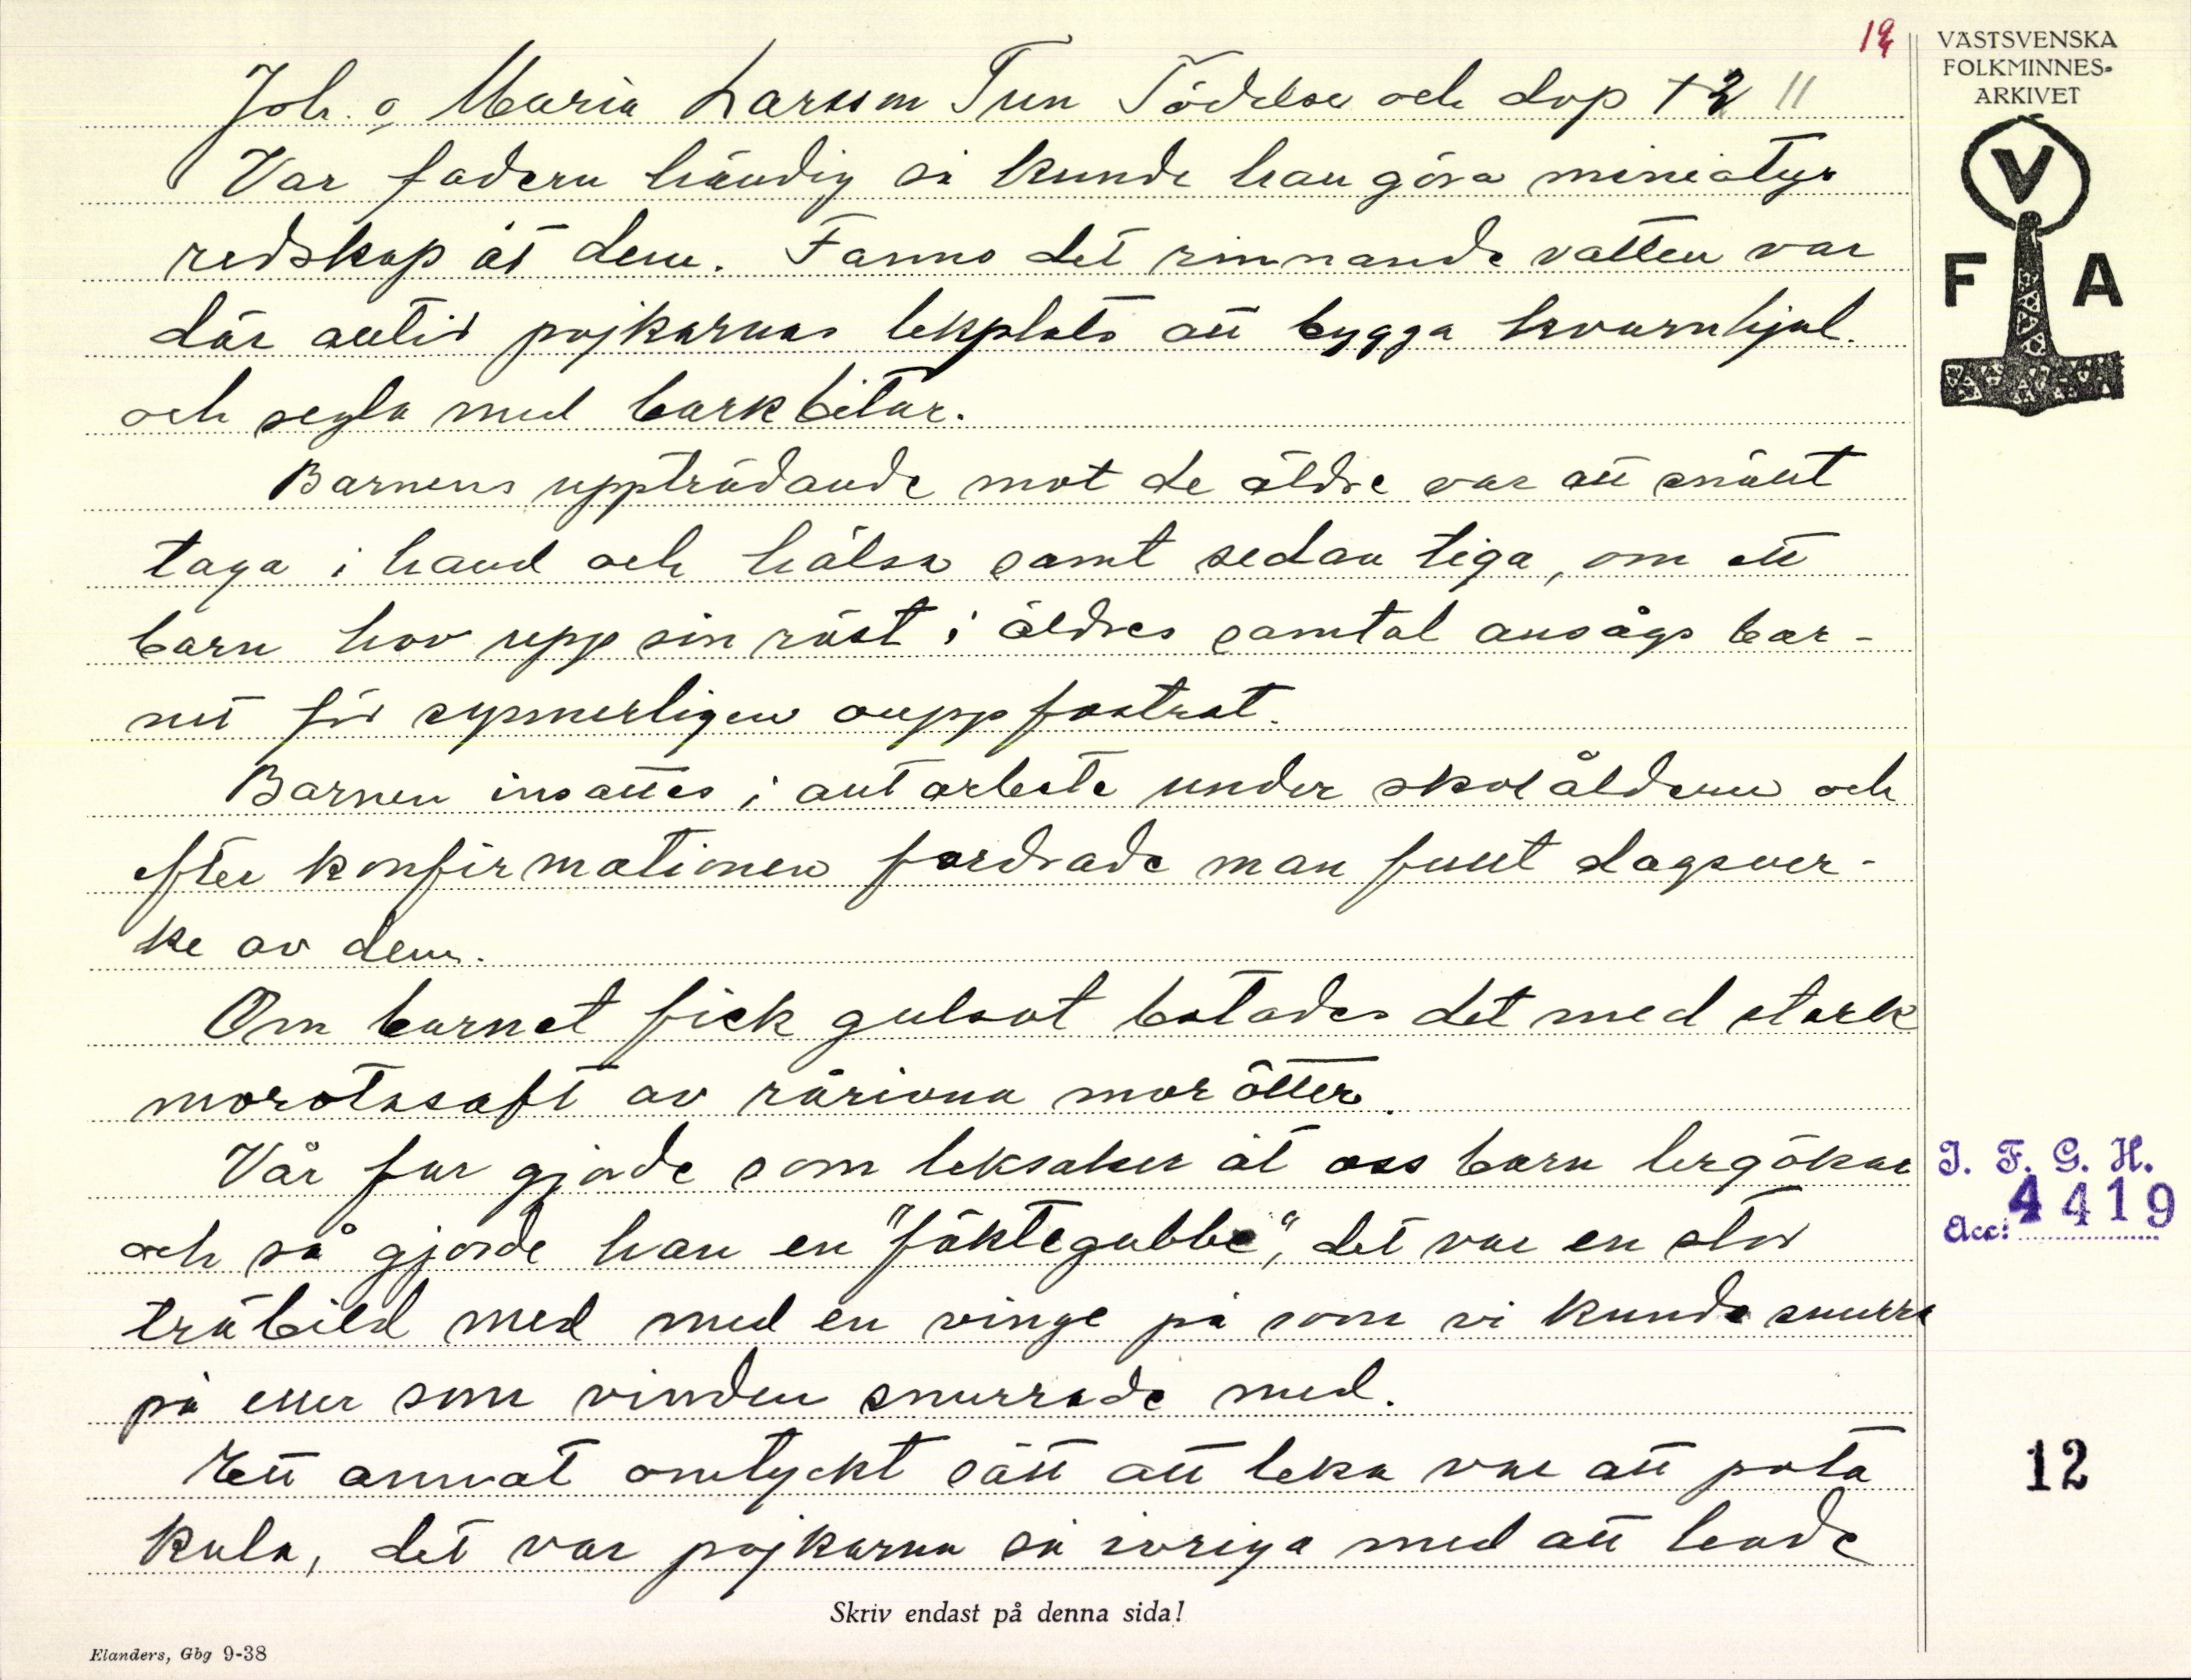 14
VÄSTSVENSKA
FOLKMINNES-
ARKIVET
V
F A
Joh. o, Maria Larsson Tun Födelse och dop 12 11
Var fadern händig så kunde han göra miniatyr
redskap åt dem. Fanns det rinnande vatten var
där alltid pojkarnas lekplats att bygga kvarnhjul.
och segla med barkbitar.
Barnens uppträdande mot de äldre var att snällt
taga i hand och hälsa samt sedan tiga, om ett
barn hov upp sin röst i äldres samtal ansågs bar-
net för synnerligen ouppfostrat.
Barnen insattes i allt arbete under skolåldern och
efter konfirmationen fordrade man fullt dagsver-
ke av dem.
Om barnet fick gulsot botades det med stark
morotssaft av rårivna morötter.
Vår far gjorde som leksaker åt oss barn lergökar
och så gjorde han en "fäktegubbe", det var en stor
träbild med med en vinge på som vi kunde snurra
på eller som vinden snurrade med.
Ett annat omtyckt sätt att leka var att pota
kula, det var pojkarna så ivriga med att hade
I. F. G. H.
Acc: 4419
12
Skriv endast på denna sida!
Elanders, Gbg 9-38